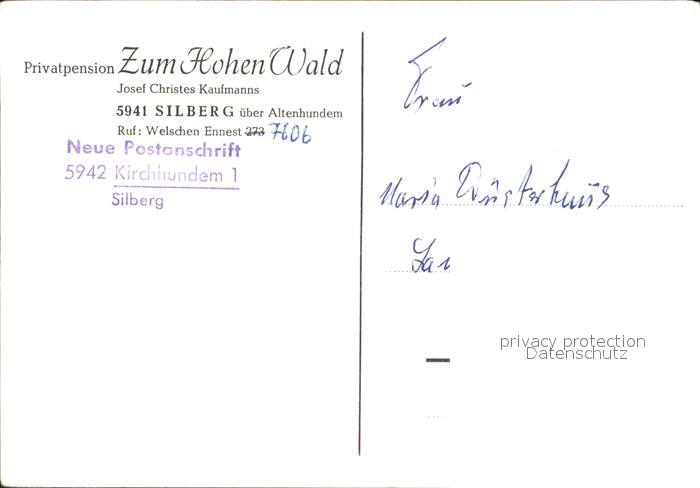 Privatpension Zum Hohen Wald
Josef Christes Kaufmanns
5941 SILBERG über Altenhundem
Ruf: Welschen Ennest 273 7606
Neue Postanschrift
5942 Kirchhundem 1
Silberg
Frau
Maria Düsterhus
privacy protection
Datenschutz